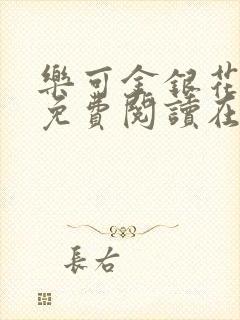 樂可金銀花
免費閱讀在
長右